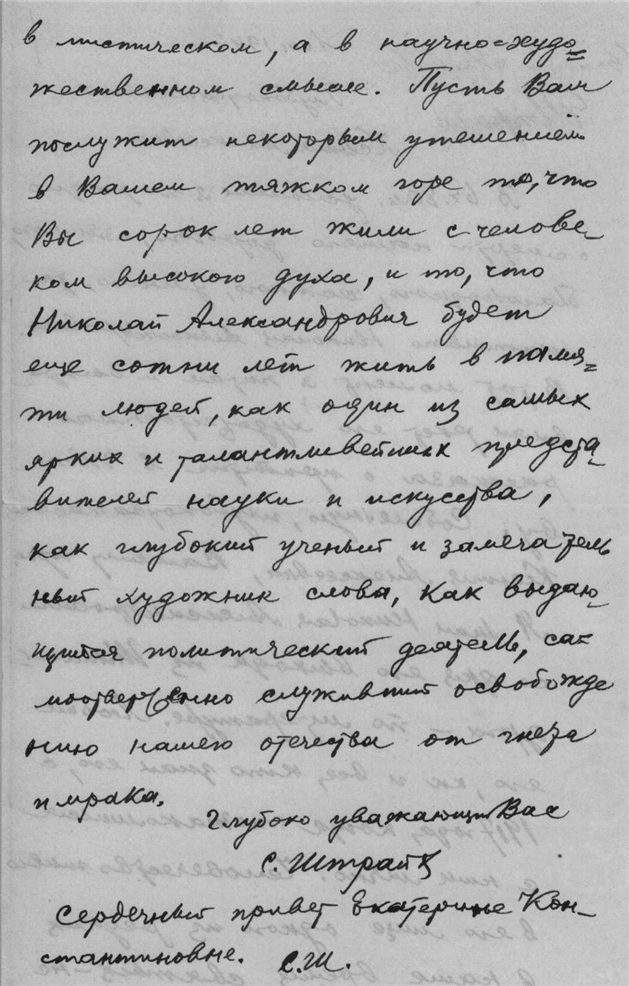 в мистическом, а в научно=худо=
жественном смысле. Пусть Вам
послужит некоторым утешением
в Вашем тяжком горе то, что
Вы сорок лет жили с челове-
ком высокого духа, и то, что
Николай Александрович будет
еще сотни лет жить в памя=
ти людей, как один из самых
ярких и талантливейших предста-
вителей науки и искусства,
как глубокий ученый и замечатель
ный художник слова, как выдаю-
щийся политический деятель, са=
моотверженно служивший освобожде
нию нашего отечества от гнета
и мрака.
Глубоко уважающий Вас
С. Штрайх
Сердечный привет Екатерине Кон-
стантиновне. С.Ш.